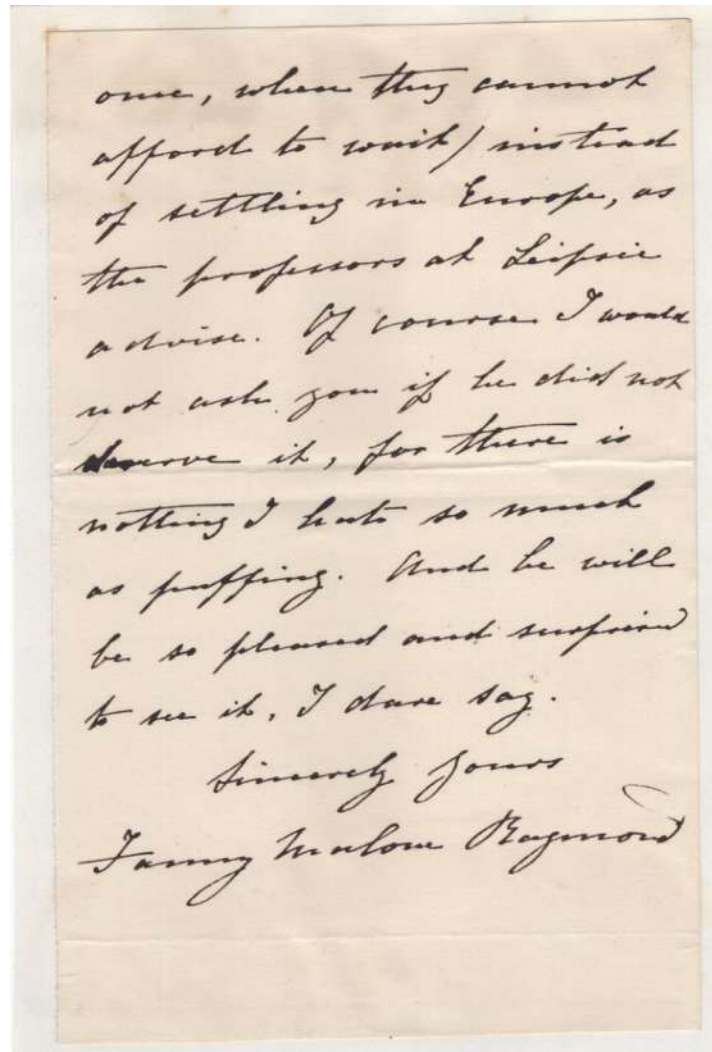 once, when they cannot
afford to wait) instead
of settling in Europe, as
the professors at Leipsic
advise. Of course I would
not ask you if he did not
deserve it, for there is
nothing I hate so much
as puffing. And he will
be so pleased and surprised
to see it, I dare say.
Sincerely yours
Fanny Malone Raymond